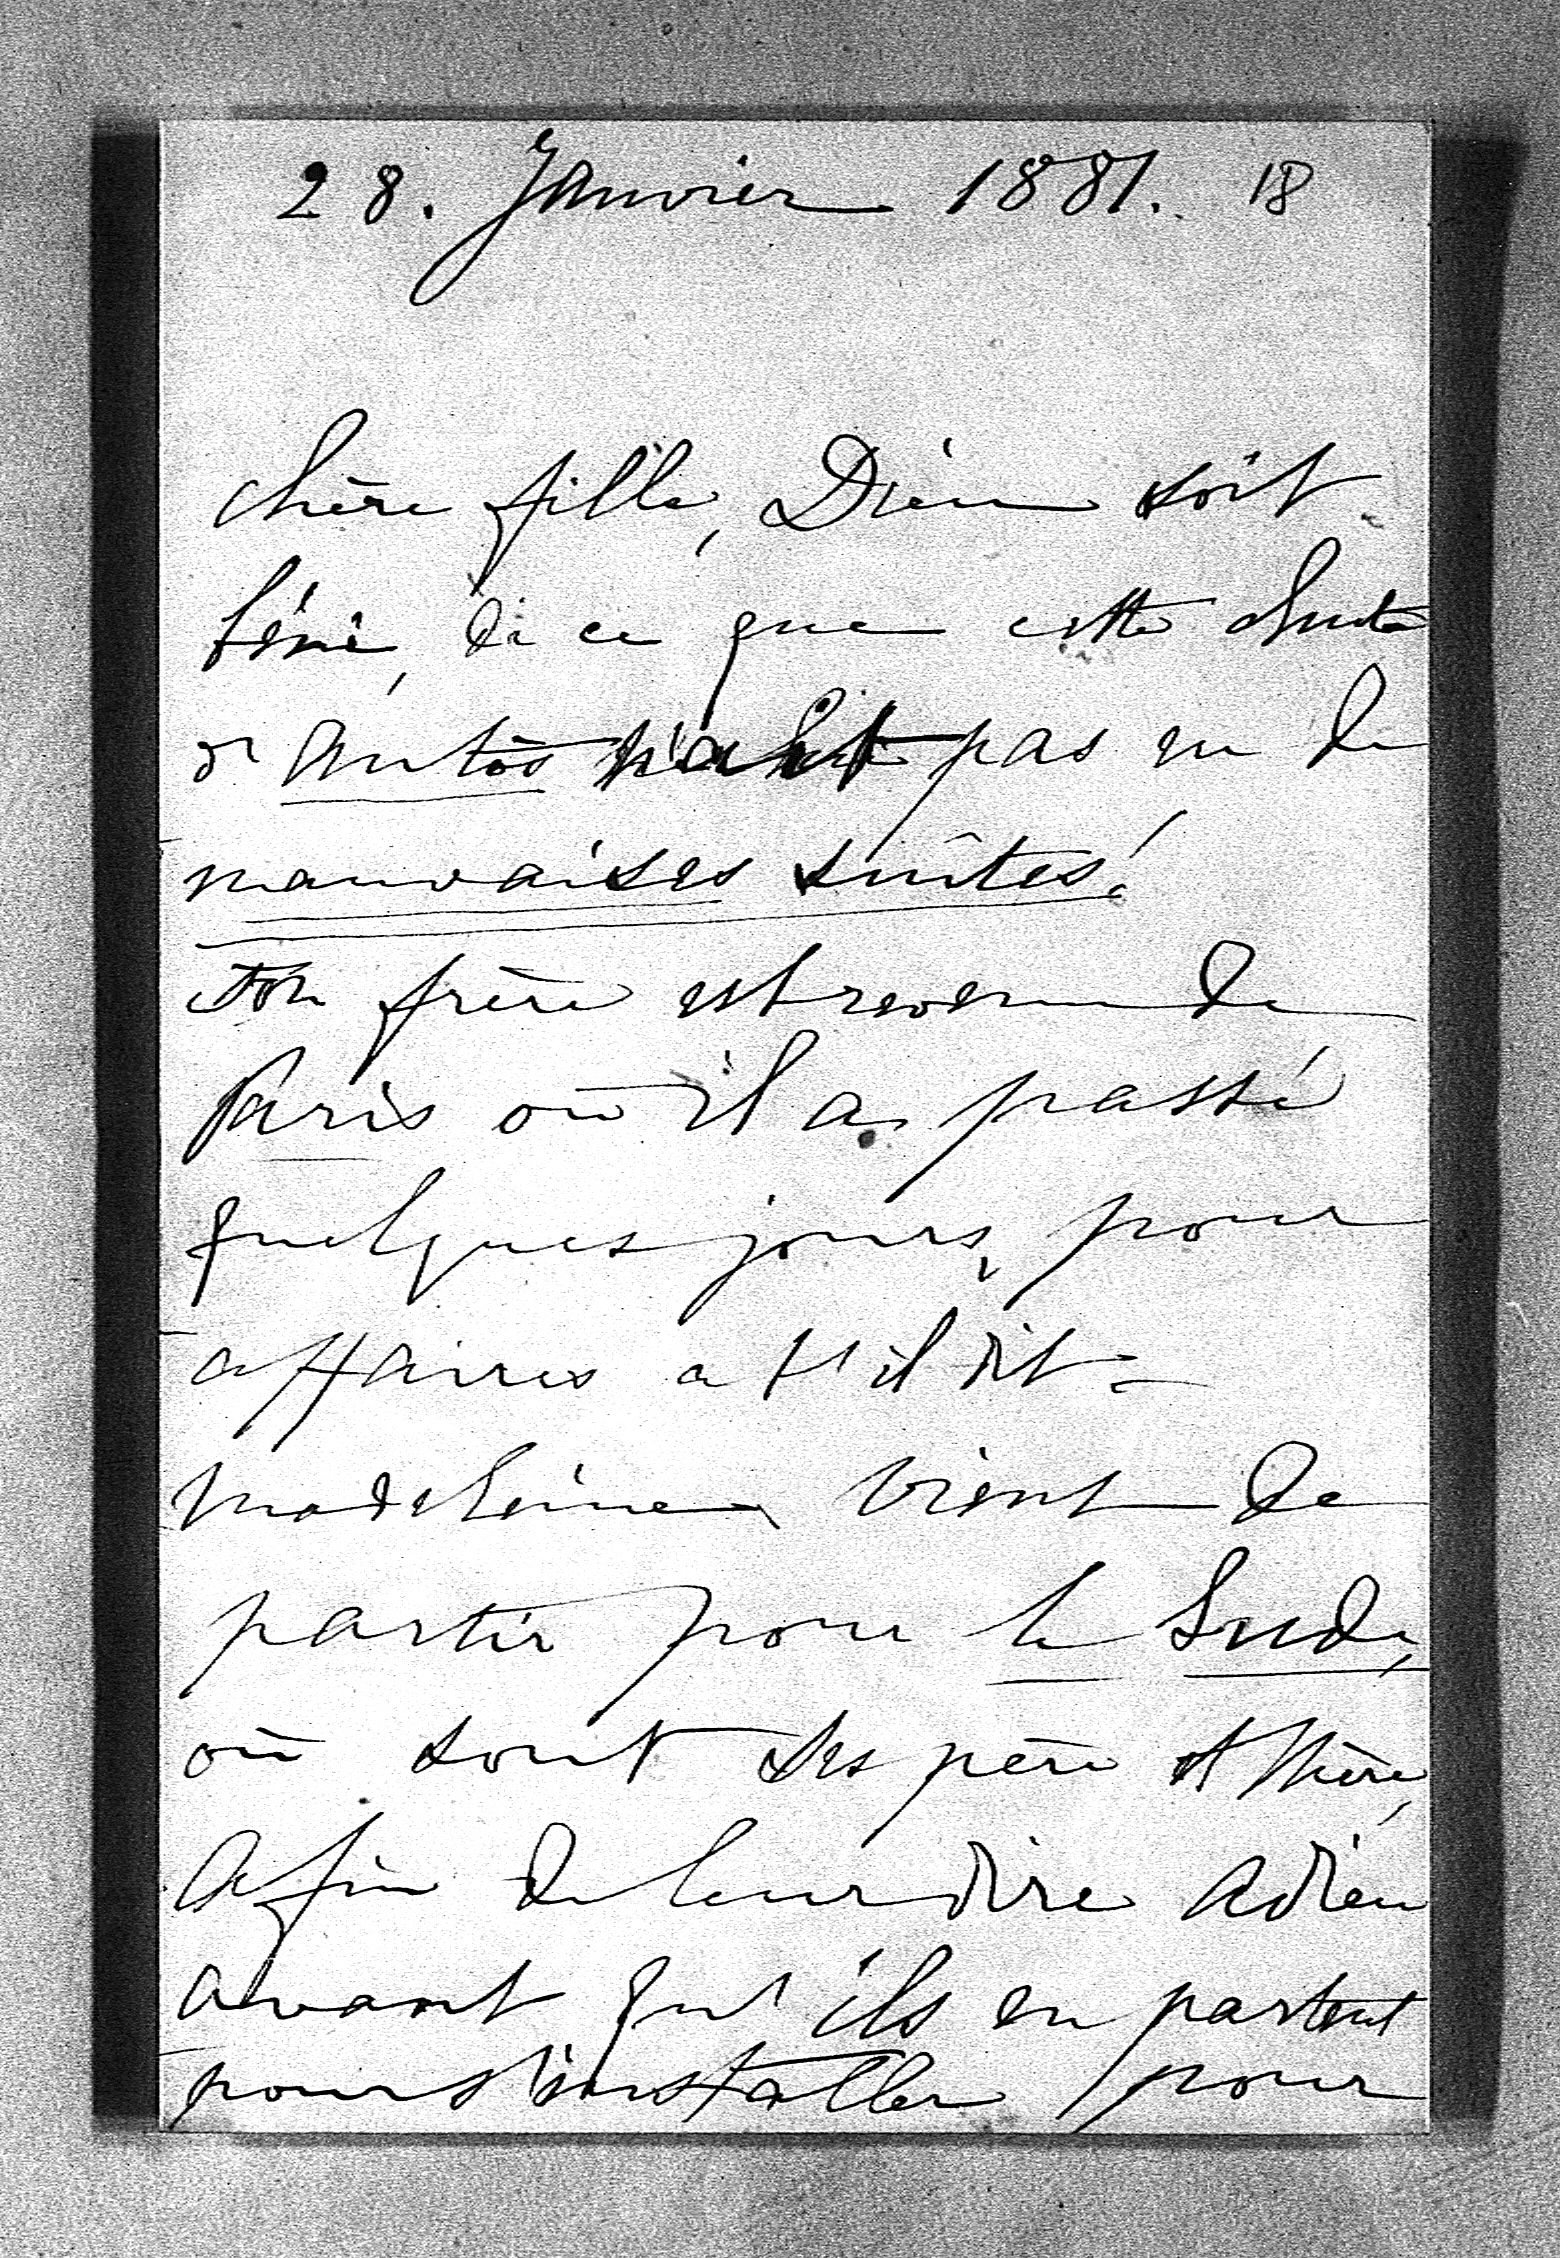 28. Janvier 1881. 18
chère fille, Dieu soit
béni, de ce que cette chute
d'Antos n'ait pas eu de
mauvaises suites!
ton frère est revenu de
Paris où il a passé
quelques jours, pour
affaires a t'il dit =
Madeleine vient de
partir pour le Sude,
où sont ses père et Mère,
Afin de leur dire adieu
avant qu'ils en partent
pour s'installer pour